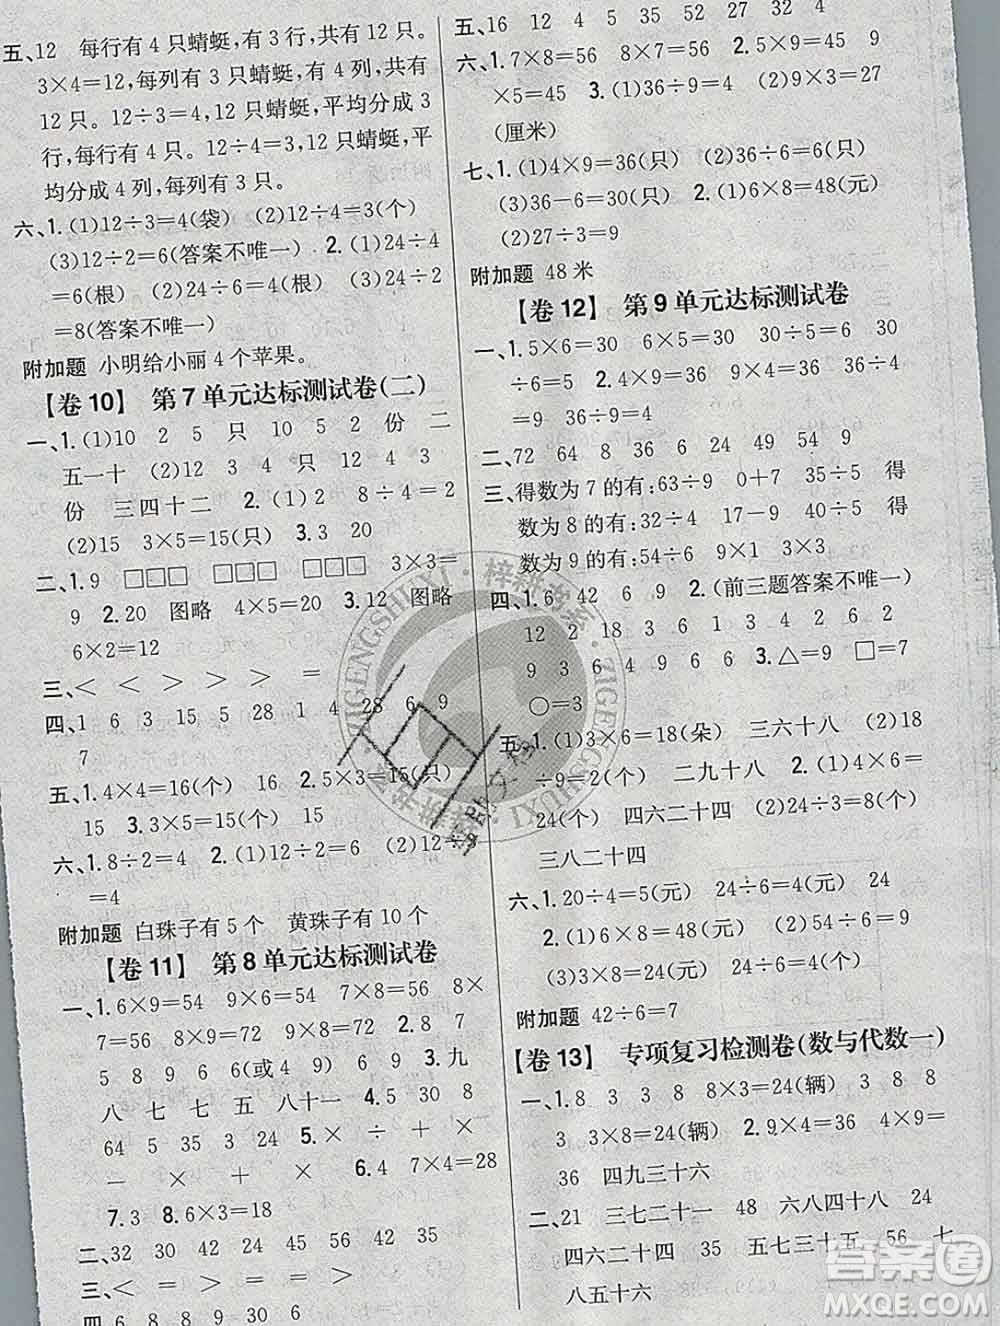 五、12 每行有 4 只蜻蜓,有 3 行,共有 12 只。
3×4=12,每列有 3 只蜻蜓,有 4 列,共有
12 只。12÷3=4 12 只蜻蜓,平均分成 3
行,每行有 4 只。12÷4=3 12 只蜻蜓,平
均分成 4 列,每列有 3 只。
六、1.(1)12÷3=4(袋) (2)12÷4=3(个)
(3)12÷2=6(答案不唯一) 2.(1)24÷4
=6(根) (2)24÷6=4(根) (3)24÷3
=8(答案不唯一)
附加题 小明给小丽 4 个苹果。
【卷 10】 第 7 单元达标测试卷(二)
一、1.(1)10 2 5 只 10 5 2 份 二
五一十 (2)12 3 4 只 12 4 3
份 三四十二 2.(1)2 8÷4=2
(2)15 3×5=15(只) 3.3 20
二、1.9 □□□ □□□ □□□ 3×3=
9 2.20 图略 4×5=20 3.12 图略
6×2=12
三、< < > > > =
四、1 6 3 15 5 28 1 4 28 6 9
7
五、1.4×4=16(个) 16 2.5×3=15(只)
15 3.3×5=15(个)
六、1.8÷2=4 2.(1)12÷2=6 (2)12÷3
=4
附加题 白珠子有 5 个 黄珠子有 10 个
【卷 11】 第 8 单元达标测试卷
一、1.6×9=54 9×6=54 7×8=56 8×
7=56 8×9=72 9×8=72 2.8 7
5 8 9 6 6(或 4 9) 3.九
八 七 七 五 八十一 4.5 30 8
64 5 35 3 24 5.× ÷ + ×
− × + × 6.4 7×4=28
7.3 8.6×3=18
二、32 30 42 24 45 56
三、< > < = > =
四、6 8 8 9 30 6
五、16 12 4 28 7 54 9 32 4
六、1.7×8=56 8×7=56 2.5×9=45 9
×5=45 3.(1)36÷9=4 (2)9÷9=1
(厘米)
七、1.(1)4×9=36(只) (2)36÷6=6(只)
(3)36−6=30(只) 2.(1)6×8=48(元)
(2)27÷3=9
附加题 48 米
【卷 12】 第 9 单元达标测试卷
一、1.5×6=30 6×5=30 30÷5=6 30
÷6=5 2.4×9=36 9×4=36 36÷4
=9 36÷9=4
二、72 64 8 36 6 24 49 54 9
三、得数为 7 的有:63÷9 0+7 35÷5 得
数为 8 的有:32÷4 17−9 40÷5 得
数为 9 的有:54÷6 9×1 3×3
四、1.6 42 6 9 2.(前三题答案不唯一)
12 2 18 3 6 1 3 4 2 4
9 3 6 4 9 6 6 3.△=9 □=7
○=3
五、1.(1)3×6=18(朵) 三六十八 (2)18
÷9=2(个) 二九十八 2.(1)4×6=
24(个) 四六二十四 (2)24÷3=8(个)
三八二十四
六、1.20÷4=5(元) 24÷6=4(元) 24
2.(1)48÷6=8(元) (2)54÷6=9
(3)3×8=24(元) 24÷6=4(个)
附加题 42÷6=7
【卷 13】 专项复习检测卷(数与代数一)
一、1.8 3 3 8 8×3=24(辆) 3 8 8
3 3×8=24(辆) 2.9×4=36 4×9=
36 四九三十六
二、21 三七二十一 48 六八四十八 24
四六二十四 35 五七三十五 56 七
八五十六
ZIGENGSHUXI·梓耕书系·ZIGENGSHUXI
答案圈
MXQE.COM